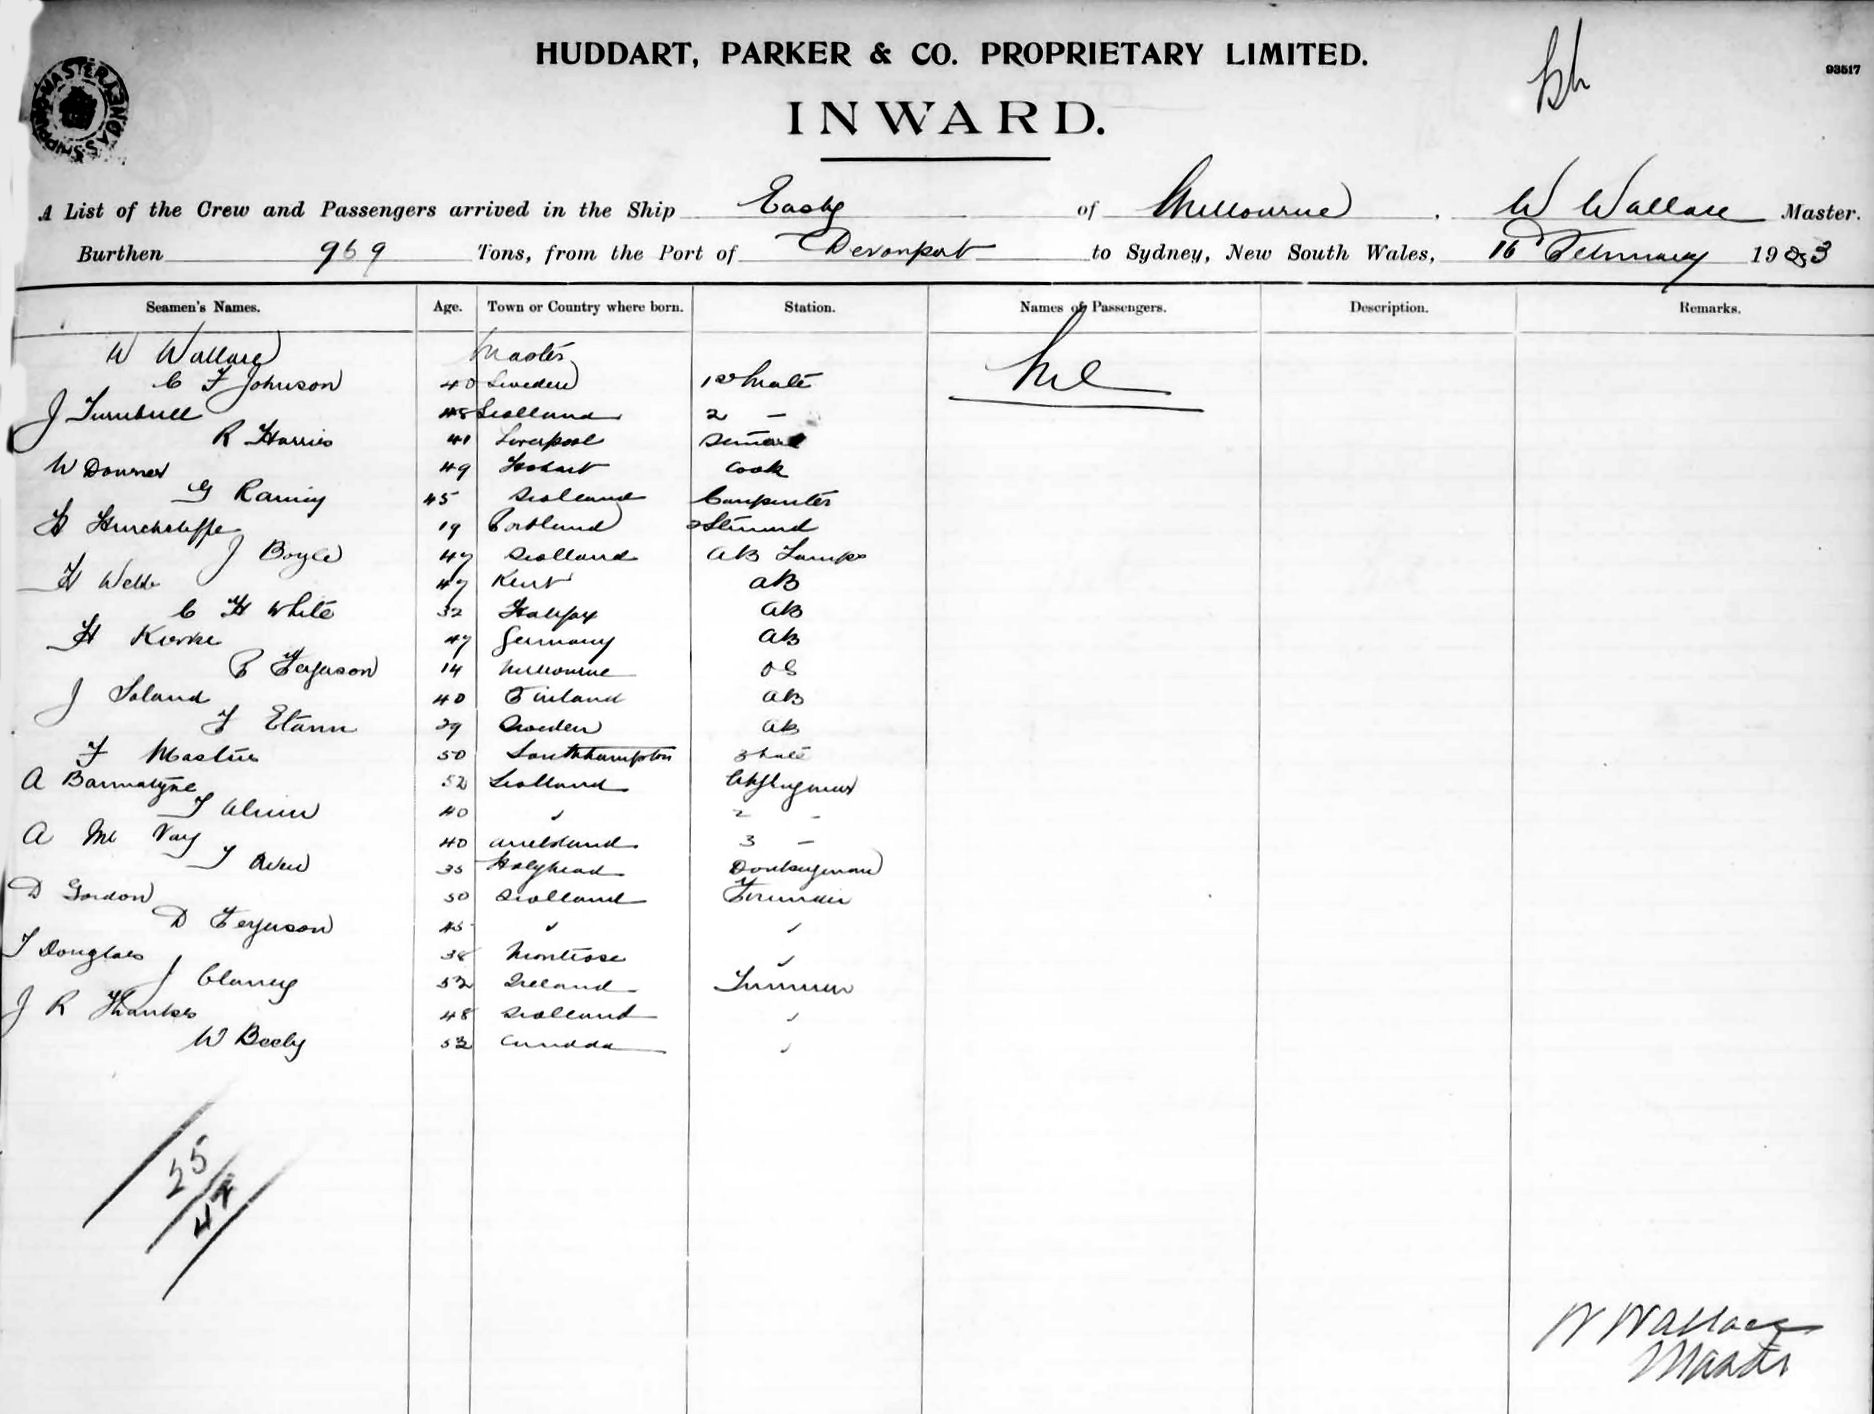 HUDDART, PARKER & CO. PROPRIETARY LIMITED.
93517
INWARD.
A List of the Crew and Passengers arrived in the Ship Easby of Melbourne, W Wallace Master.
Burthen 969 Tons, from the Port of Devonport to Sydney, New South Wales, 16 February 1903
Seamen's Names. Age. Town or Country where born. Station. Names of Passengers. Description. Remarks.
W Wallace Master
C F Johnson 40 Sweden 1st Mate Nil
J Turnbull 48 Scotland 2 -
R Harris 41 Liverpool Steward
W Downes 49 Hobart Cook
G Ramsey 45 Scotland Carpenter
H Hinchcliffe 19 Portland 2 Steward
J Boyle 47 Scotland AB Lamps
H Webb 47 Kent AB
C H White 32 Halifax AB
H 47 Germany AB
P Ferguson 14 Melbourne OS
J Soland 40 Finland AB
F 29 Sweden AB
F Masters 50 Southhampton 3 Mate
A Bannatyne 52 Scotland Chf Engineer
T 40 " 2 -
A Mc Vay 40 3 -
T Owen 35 Holyhead Donkeyman
D Gordon 50 Scotland Fireman
D Ferguson 45 " "
T Douglas 38 Montrose "
J Clancy 52 Ireland Trimmer
J R 48 Scotland "
W Beeby 52 Canada "
25
47
W Wallace
Master